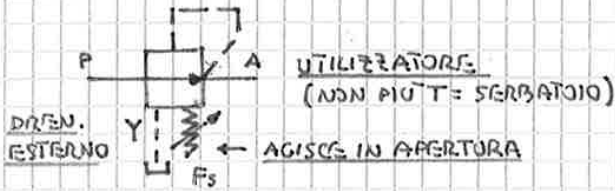 P A UTILIZZATORE
(NON PIÙ T = SERBATOIO)
DREN.
ESTERNO Y
Fs ← AGISCE IN APERTURA